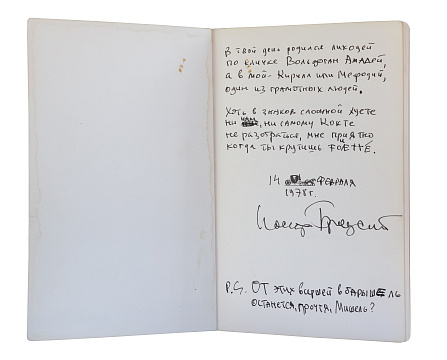 В твой день родился лиходей
по кличке Вольфган Амадей,
а в мой - Кирилл или Мефодий,
один из грамотных людей.
Хоть в знаков сложной суете
ни нам, ни самому Кокте
не разобраться, мне приятно
когда ты крутишь FUETTÉ.
14 ФЕВРАЛЯ
1978 г.
Иосиф Бродский
P.S. ОТ этих виршей в барышЕ ль
останется, прочтя, Мишель?